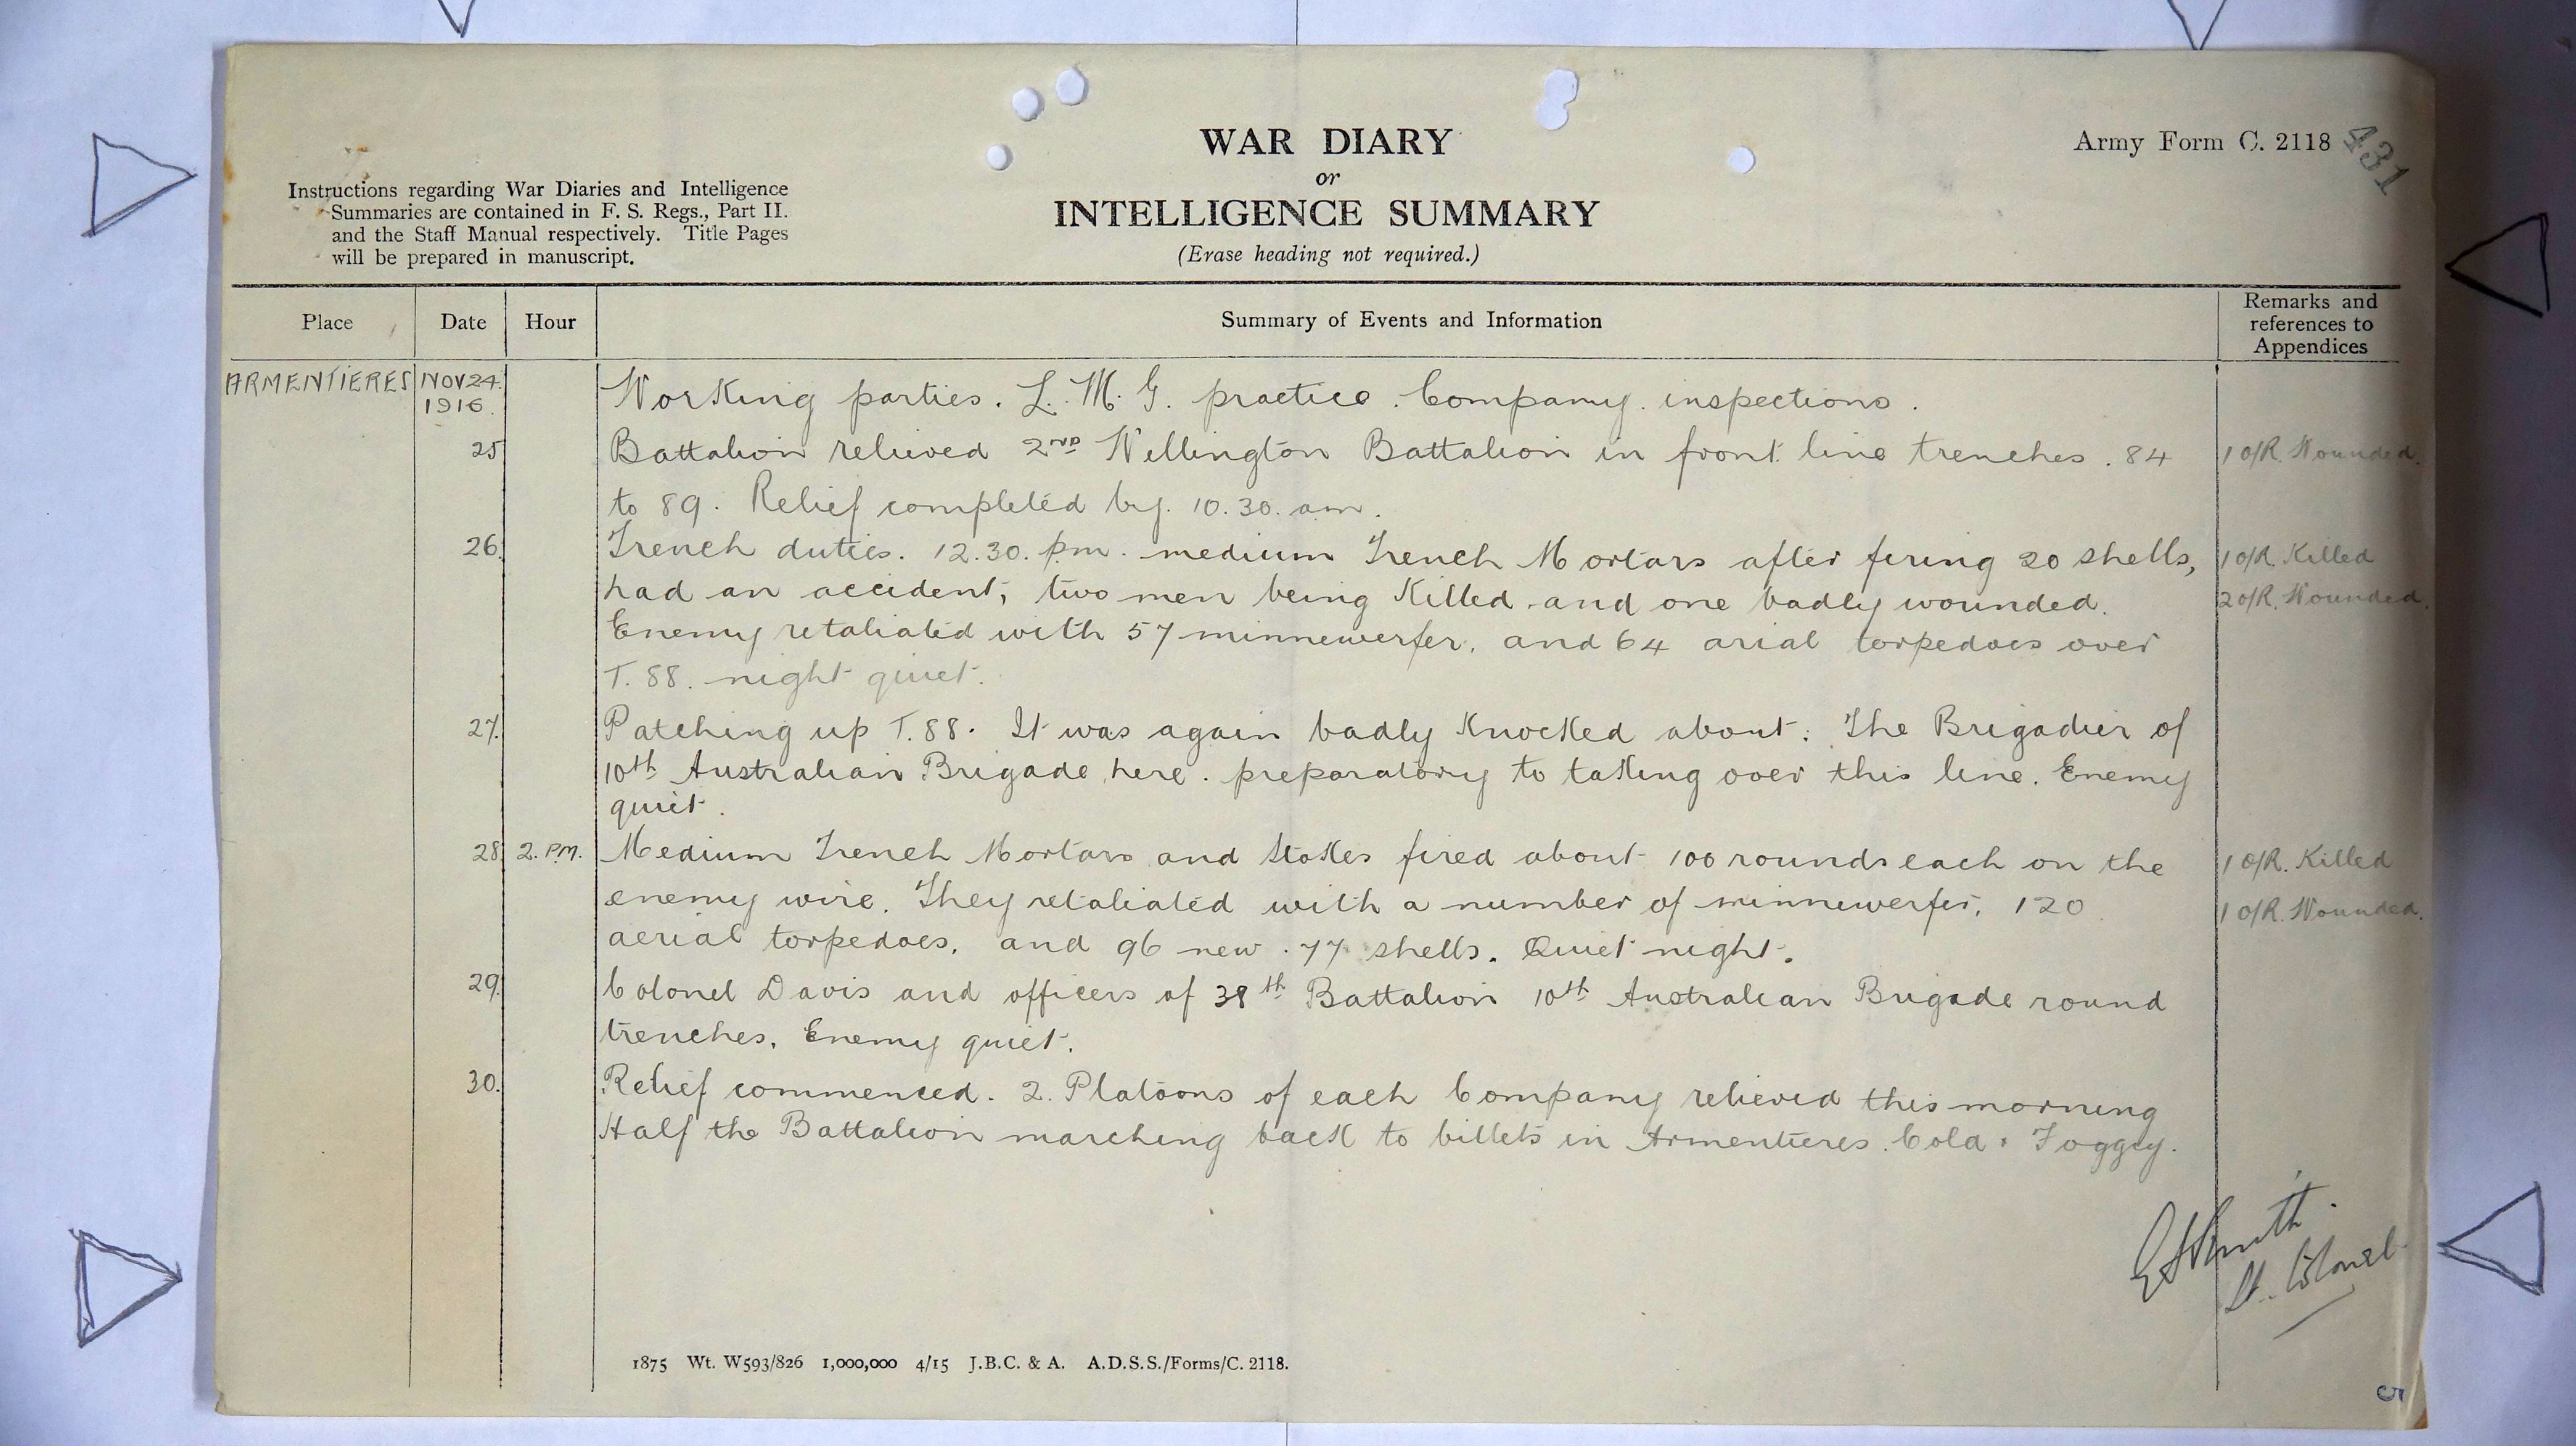 WAR DIARY
or
INTELLIGENCE SUMMARY
(Erase heading not required.)
Army Form C. 2118
431
Instructions regarding War Diaries and Intelligence
Summaries are contained in F. S. Regs., Part II.
and the Staff Manual respectively. Title Pages
will be prepared in manuscript.
Place Date Hour Summary of Events and Information Remarks and references to Appendices
ARMENTIERES NOV 24. 1916. Working parties. L. M. G. practice. Company. inspections.
25 Battalion relieved 2ND Wellington Battalion in front line trenches. 84 1 O/R. Wounded.
to 89. Relief completed by. 10.30. am.
26. Trench duties. 12.30. pm. medium Trench Mortars after firing 20 shells, 1 O/R. Killed
had an accident, two men being Killed and one badly wounded. 2 O/R. Wounded.
Enemy retaliated with 57 minnewerfer, and 64 arial torpedoes over
T. 88. night quiet.
27. Patching up T. 88. It was again badly Knocked about. The Brigadier of
10th Australian Brigade here. preparatory to taking over this line. Enemy
quiet.
28. 2. P.M. Medium Trench Mortars and Stokes fired about 100 rounds each on the 1 O/R. Killed
enemy wire. They retaliated with a number of minnewerfer, 120 1 O/R. Wounded.
aerial torpedoes, and 96 new .77 shells. Quiet night.
29. Colonel Davis and officers of 38th Battalion 10th Australian Brigade round
trenches. Enemy quiet.
30. Relief commenced. 2. Platoons of each Company relieved this morning
Half the Battalion marching back to billets in Armentieres. Cold. Foggy.
Smith.
Lt. Colonel
1875 Wt. W593/826 1,000,000 4/15 J.B.C. & A. A.D.S.S./Forms/C. 2118.
5